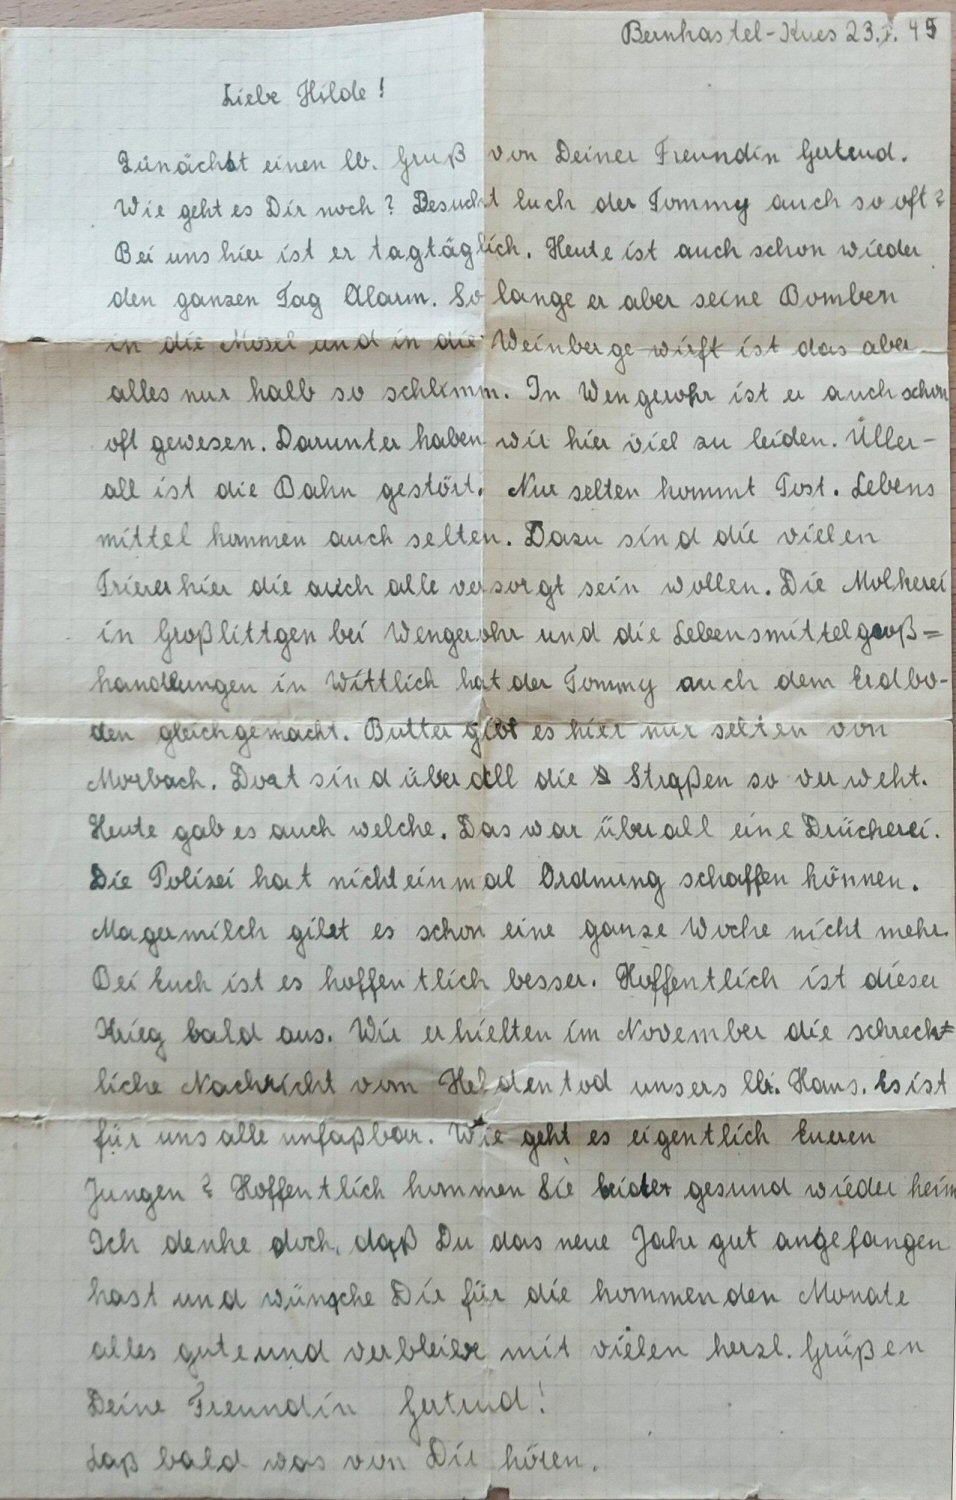 Bernhastel-Kues 23.1.45
Liebe Hilde!
Zunächst einen lb. Gruß von Deiner Freundin Gertrud.
Wie geht es Dir noch? Besucht Euch der Tommy auch so oft?
Bei uns hier ist er tagtäglich. Heute ist auch schon wieder
den ganzen Tag Alarm. So lange er aber seine Bomben
in die Mosel und in die Weinberge wirft ist das aber
alles nur halb so schlimm. In Wengerohr ist er auch schon
oft gewesen. Darunter haben wir hier viel zu leiden. Üller-
all ist die Bahn gestört. Nur selten kommt Post. Lebens
mittel kommen auch selten. Dazu sind die vielen
Trierer hier die auch alle versorgt sein wollen. Die Molkerei
in Großlittgen bei Wengerohr und die Lebensmittelgroß=
handlungen in Wittlich hat der Tommy auch dem Erdbo-
den gleichgemacht. Butter gibt es hier nur selten von
Morbach. Dort sind überall die Straßen so verweht.
Heute gab es auch welche. Das war überall eine Drückerei.
Die Polizei hat nicht einmal Ordnung schaffen können.
Magermilch gibt es schon eine ganze Woche nicht mehr.
Bei Euch ist es hoffentlich besser. Hoffentlich ist dieser
Krieg bald aus. Wir erhielten im November die schreck=
liche Nachricht vom Heldentod unsers lb. Hans. Es ist
für uns alle unfaßbar. Wie geht es eigentlich Eueren
Jungen? Hoffentlich kommen Sie beider gesund wieder heim
Ich denke doch, daß Du das neue Jahr gut angefangen
hast und wünsche Dir für die kommenden Monate
alles gute und verbleibe mit vielen herzl. Grüßen
Deine Freundin Gertrud!
Laß bald was von Dir hören.